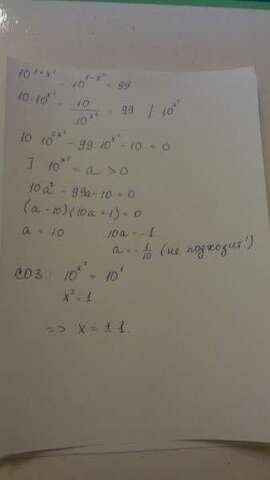 10^{1+x²} - 10^{1-x²} = 99
10·10^{x²} - \frac{10}{10^{x²}} = 99 | 10^{x²}
10·10^{2x²} - 99·10^{x²} - 10 = 0
] 10^{x²} = a > 0
10a² - 99a - 10 = 0
(a - 10)(10a + 1) = 0
a = 10 10a = -1
a = -\frac{1}{10} (не подходит!)
СОЗ: 10^{x²} = 10^1
x² = 1
=> x = ± 1.